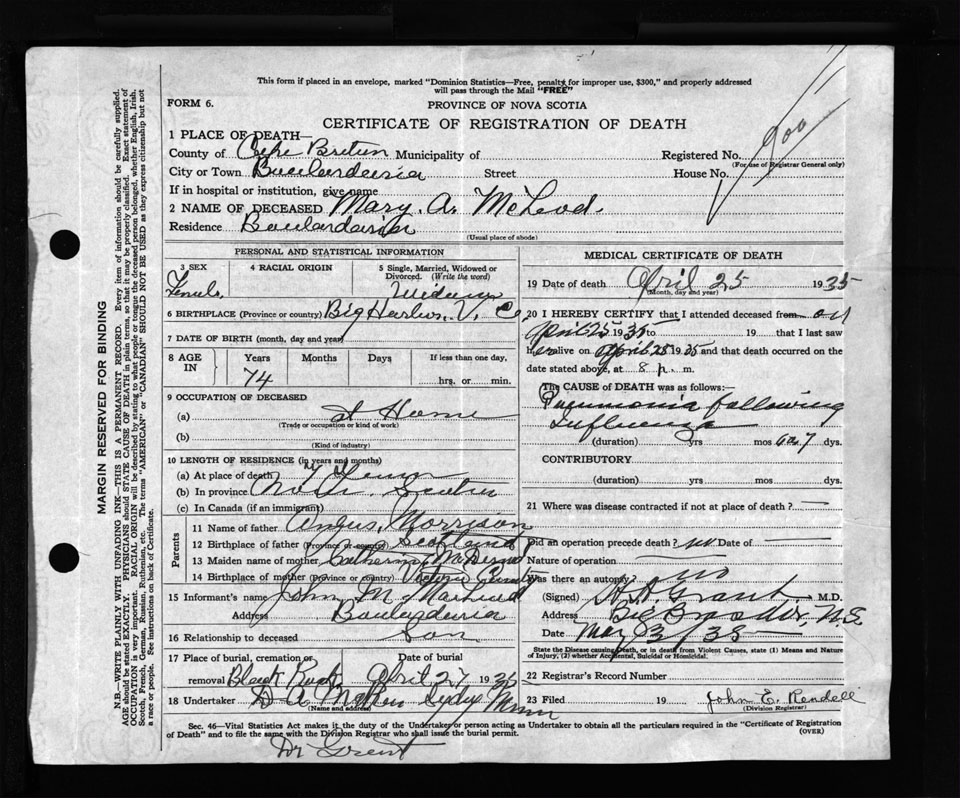 This form if placed in an envelope, marked "Dominion Statistics—Free, penalty for improper use, $300," and properly addressed
will pass through the Mail "FREE"
FORM 6.
PROVINCE OF NOVA SCOTIA
CERTIFICATE OF REGISTRATION OF DEATH
1 PLACE OF DEATH—
County of Cape Breton Municipality of
Registered No. 900
(For use of Registrar General only)
City or Town Street House No.
If in hospital or institution, give name
2 NAME OF DECEASED Mary A. McLeod.
Residence
(Usual place of abode)
PERSONAL AND STATISTICAL INFORMATION
3 SEX
Female
4 RACIAL ORIGIN
5 Single, Married, Widowed or
Divorced. (Write the word)
Widow
6 BIRTHPLACE (Province or country) Big Harbor, V. Co
7 DATE OF BIRTH (month, day and year)
8 AGE
IN
Years Months Days If less than one day,
74
hrs. or min.
9 OCCUPATION OF DECEASED
(a) at Home
(Trade or occupation or kind of work)
(b)
(Kind of industry)
10 LENGTH OF RESIDENCE (in years and months)
(a) At place of death
(b) In province Nova Scotia
(c) In Canada (if an immigrant)
Parents
11 Name of father Angus Morrison
12 Birthplace of father (Province or country) Scotland
13 Maiden name of mother Catherine
14 Birthplace of mother (Province or country) Victoria County
15 Informant's name John M.
Address
16 Relationship to deceased Son
17 Place of burial, cremation or Date of burial
removal Black April 27 1935
18 Undertaker D A
(Name and address)
MEDICAL CERTIFICATE OF DEATH
19 Date of death April 25 1935
(Month, day and year)
20 I HEREBY CERTIFY that I attended deceased from on
April 25 1935 to 19 that I last saw
her alive on April 25 1935 and that death occurred on the
date stated above, at 8 p. m.
The CAUSE of DEATH was as follows:—
Pneumonia following
Influenza
(duration) yrs mos 6 or 7 dys.
CONTRIBUTORY
(duration) yrs mos dys.
21 Where was disease contracted if not at place of death?
Did an operation precede death? no Date of
Nature of operation
Was there an autopsy no
(Signed) Grant M.D.
Address Big Bras d'Or, N.S.
Date May 3/35
State the Disease causing Death, or in death from Violent Causes, state (1) Means and Nature
of Injury, (2) whether Accidental, Suicidal or Homicidal.
22 Registrar's Record Number
23 Filed 19 John E. Rendell
(Division Registrar)
Sec. 46—Vital Statistics Act makes it the duty of the Undertaker or person acting as Undertaker to obtain all the particulars required in the "Certificate of Registration
of Death" and to file the same with the Division Registrar who shall issue the burial permit.
(OVER)
Dr Grant
MARGIN RESERVED FOR BINDING
N.B.—WRITE PLAINLY WITH UNFADING INK—THIS IS A PERMANENT RECORD. Every item of information should be carefully supplied.
AGE should be stated EXACTLY. PHYSICIANS should STATE CAUSE OF DEATH in plain terms, so that it may be properly classified. Exact statement of
OCCUPATION is very important. RACIAL ORIGIN will be described by stating to what people or tongue the deceased person belonged, whether English, Irish,
Scotch, French, German, Russian, Ruthenian, etc. The terms "AMERICAN" or "CANADIAN" SHOULD NOT BE USED as they express citizenship but not
a race or people. See instructions on back of Certificate.